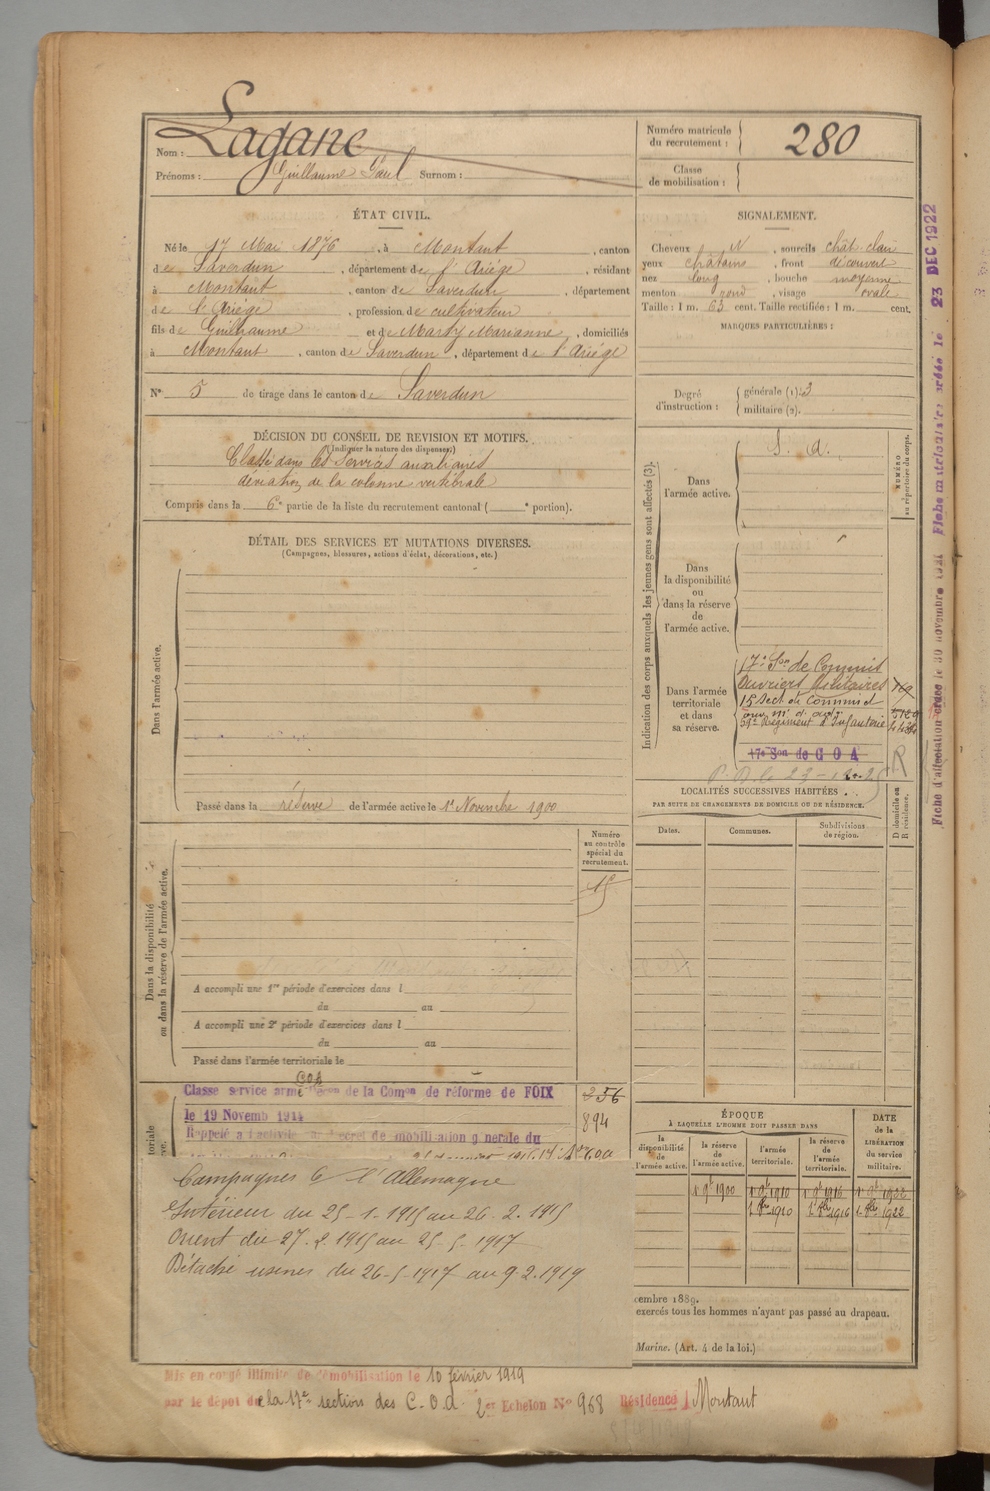 Nom : Lagane
Prénoms : Guillaume Paul Surnom :
Numéro matricule du recrutement : 280
Classe de mobilisation :
ÉTAT CIVIL.
Né le 17 Mai 1876, à Montaut, canton
de Saverdun, département de l'Ariège, résidant
à Montaut, canton de Saverdun, département
de l'Ariège, profession de cultivateur
fils de Guilhaume et de Marty Marianne, domiciliés
à Montaut, canton de Saverdun, département de l'Ariège
N° 5 de tirage dans le canton de Saverdun
SIGNALEMENT.
Cheveux N, sourcils chât. clair
yeux châtains, front découvert
nez long, bouche moyenne
menton rond, visage ovale
Taille : 1 m. 63 cent. Taille rectifiée : 1 m. cent.
MARQUES PARTICULIÈRES :
Degré d'instruction : générale (1). 3
militaire (2).
DÉCISION DU CONSEIL DE REVISION ET MOTIFS.
(Indiquer la nature des dispenses)
Classé dans les Services auxiliaires
déviation de la colonne vertébrale
Compris dans la 6e partie de la liste du recrutement cantonal ( e portion).
DÉTAIL DES SERVICES ET MUTATIONS DIVERSES.
(Campagnes, blessures, actions d'éclat, décorations, etc.)
Dans l'armée active.
Passé dans la réserve de l'armée active le 1er Novembre 1900
Dans la disponibilité
ou dans la réserve de l'armée active.
Numéro
au contrôle
spécial du
recrutement.
15
A accompli une 1re période d'exercices dans l
du au
A accompli une 2e période d'exercices dans l
du au
Passé dans l'armée territoriale le
COA
Classe service armé de la Comon de réforme de FOIX
356
le 19 Novemb 1914
894
Rappelé à l'activité décret de mobilisation générale du
Campagnes C l'Allemagne
Intérieur du 25-1-1915 au 26.2.1915
Orient du 27.2.1915 au 25-5-1917
Détaché usines du 26-5-1917 au 9.2.1919
Mis en congé illimité de démobilisation le 10 février 1919
par le dépôt de la 17e section des C.O.A. 2er Echelon N° 968 Résidence Montaut
Indication des corps auxquels les jeunes gens sont affectés (3).
NUMÉRO
au répertoire du corps.
Dans
l'armée active.
S. A.
Dans
la disponibilité
ou
dans la réserve
de
l'armée active.
Dans l'armée
territoriale
et dans
sa réserve.
17e Son de Commis
Ouvriers Militaires
15 Sect de Commis et
ouv. m. d'adn
59e Régiment d'Infanterie
17e Son de COA
R
LOCALITÉS SUCCESSIVES HABITÉES
PAR SUITE DE CHANGEMENTS DE DOMICILE OU DE RÉSIDENCE.
Dates.
Communes.
Subdivisions
de région.
D domicile ou
R résidence.
ÉPOQUE
À LAQUELLE L'HOMME DOIT PASSER DANS
la disponibilité de l'armée active.
la réserve de l'armée active.
l'armée territoriale.
la réserve de l'armée territoriale.
DATE de la LIBÉRATION du service militaire.
1 9bre 1900 1 9bre 1910 1 9bre 1916 1 9bre 1922
1 8bre 1910 1 8bre 1916 1 8bre 1922
cembre 1889.
exercés tous les hommes n'ayant pas passé au drapeau.
Marine. (Art. 4 de la loi.)
Fiche matriculaire créée le 23 DEC 1922